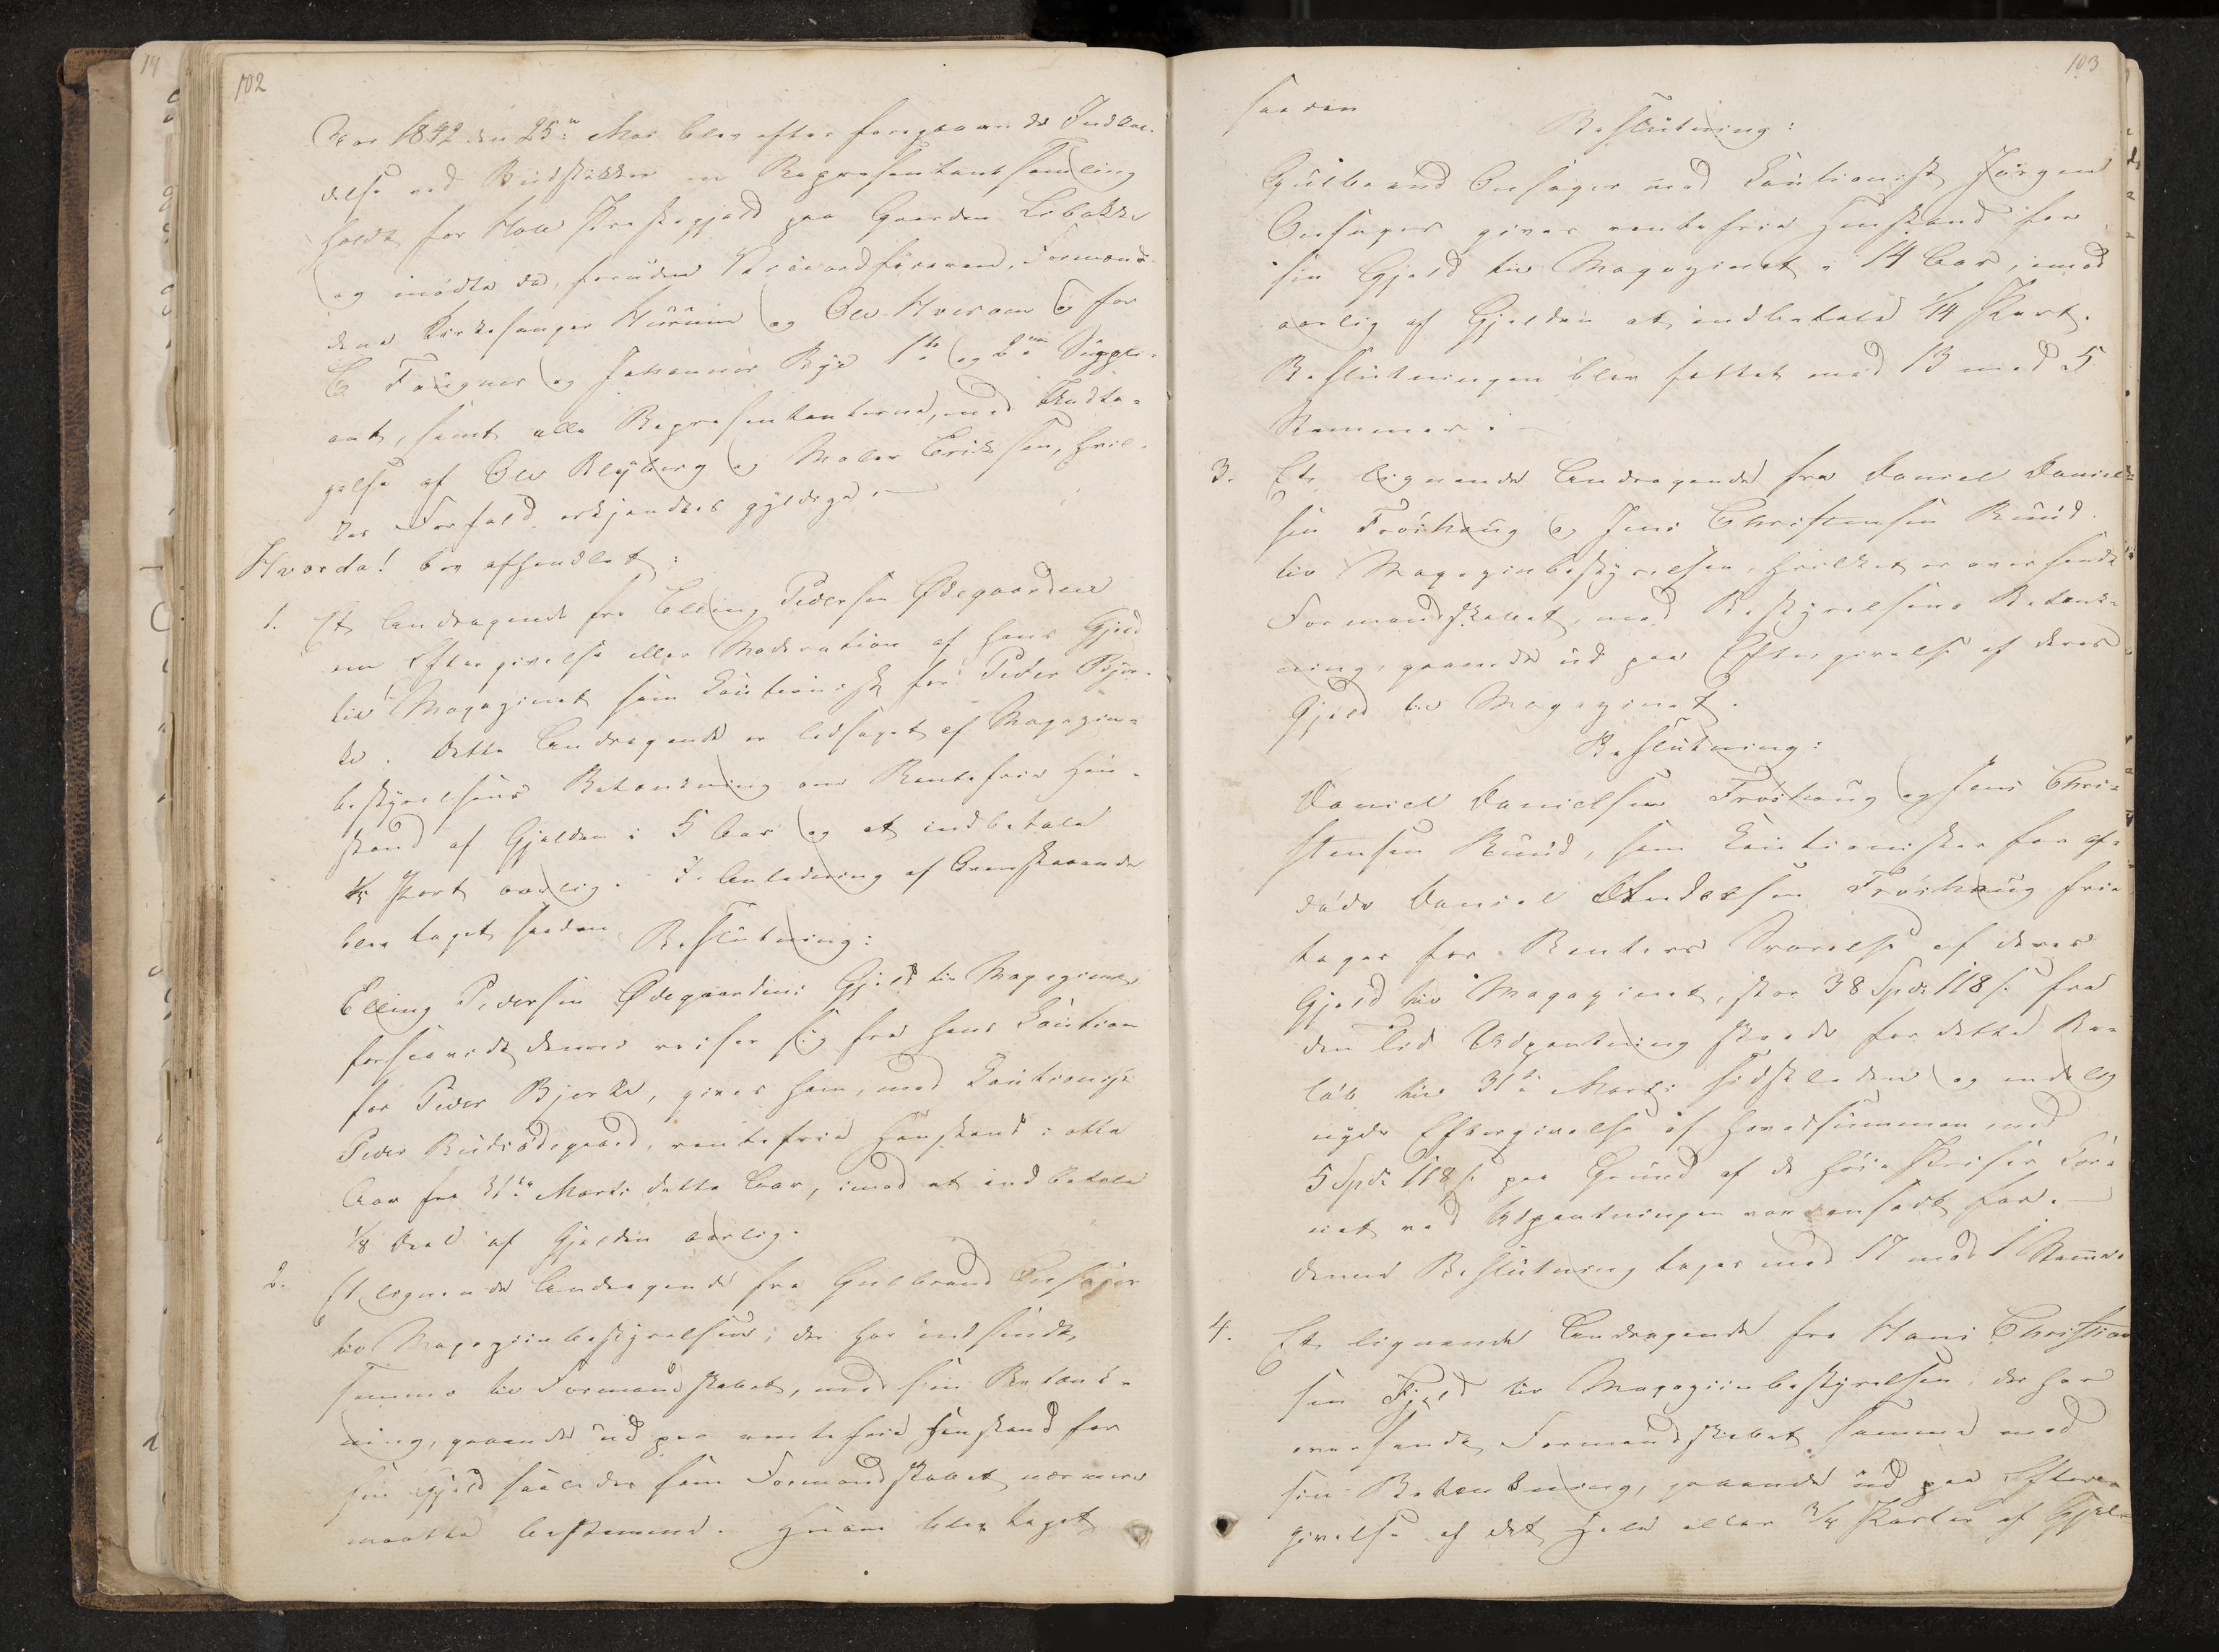 102
Aar 1842 den 25de Mai blev efter foregaaende Indkal-
delse ved Budstikker en Representantsamling
holdt for Hole Præstegjeld paa Gaarden Libakke
og mødte da, foruden Viceordføreren, Formænd-
dene Kirkesanger Hurum og Ole Hverven og for
E Fougner og Johannes Bye 1ste og 2den Supple-
ant, samt alle Representanterne, med Undta-
gelse af Ole Blyberg og Maler Eriksen, hvil-
kes Forfald erkjendtes gyldige.
Hvorda! blev afhandlet:
1. Et Andragende fra Elling Pedersen Ødegaarden
om Eftergivelse eller Moderation af hans Gjeld
til Magazinet som Kautionist for Peder Bjer-
ke. Dette Andragende er ledsaget af Magazin-
bestyrelsens Betænkning om Rentefrie Hen-
stand af Gjelden i 5 Aar og at indbetale
1/5 Part aarlig. I Anledning af Ovenstaaende
blev taget saadan Beslutning:
Elling Pedersen Ødegaardens Gjeld til Magazinet
forsaavidt denne reiser sig fra hans Caution
for Peder Bjerke, gives ham, med Cautionist
Peder Rudsødegaard, rentefrie Henstand i otte
Aar fra 31te Marts dette Aar, imod at indbetale
1/8 Deel af Gjelden aarlig.
2. Et lignende Andragende fra Gulbrand Onsager
til Magaziinbestyrelsen, der har indsendt
samme til Formandskabet, med sin Betænk-
ning, gaaende ud paa rentefrie Henstand for
sin Gjeld saaledes som Formandskabet nærmere
maatte bestemme. Herom blev taget
103
saadan
Beslutning:
Gulbrand Onsager med Cautionist Jörgen
Onsager gives rentefrie Henstand for
sin Gjeld til Magazinet i 14 Aar, imod
aarlig af Gjelden at indbetale 1/14 Part.
Beslutningen blev fattet med 13 mod 5
Stemmer.
3. Et lignende Andragende fra Daniel Daniel-
sen Fröshaug og Jens Christensen Ruud
til Magazinbestyrelsen, hvilket er oversendt
Formandskabet, med Bestyrelsens Betænk-
ning, gaaende ud paa Eftergivelse af deres
Gjeld til Magazinet.
Beslutning:
Daniel Danielsen Fröshaug og Jens Chri-
stensen Ruud, som Cautionister for af-
døde Daniel Andersen Fröshaug fri-
tages for Renters Svarelse af deres
Gjeld til Magazinet, stor 38 Spd. 118 s. fra
den Tid Udpantning skeede for dette Be-
løb til 31te Marts sidstleden og endelig
nyde Eftergivelse af Hovedsummen med
5 Spd. 118 s. paa Grund af de høie Priser Kor-
net ved Udpantningen var ansadt for.
Denne Beslutning toges med 17 mod 1 Stemme
4. Et lignende Andragende fra Hans Christian
sen Fjeld til Magaziinbestyrelsen, der har
oversendt Formandskabet samme med
sin Betænkning, gaaende ud paa Efter-
givelse af det Hele eller 3/4 Parter af Gjel-